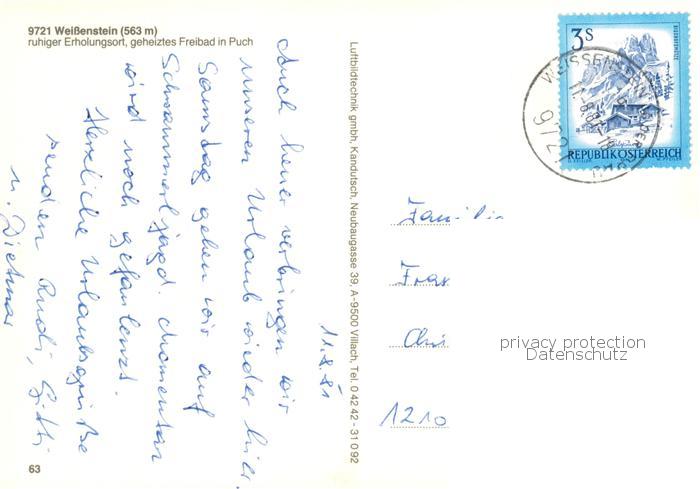 9721 Weißenstein (563 m)
ruhiger Erholungsort, geheiztes Freibad in Puch
11.8.81
Auch heuer verbringen wir
unseren Urlaub wieder hier.
Samstag gehen wir auf
Schwammerljagd. Momentan
wird noch gefaulenzt.
Herzliche Urlaubsgrüße
senden Rudi, Gitti
u. Dietmar
63
Luftbildtechnik gmbh, Kandutsch, Neubaugasse 39, A-9500 Villach, Tel. 0 42 42 - 31 0 92
3S
REPUBLIK ÖSTERREICH
9721
Familie
1210
privacy protection
Datenschutz